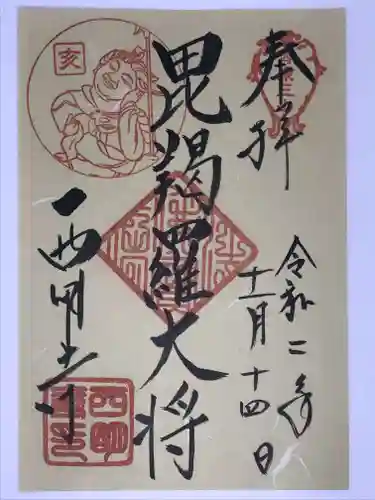 奉拝
令和二年
十一月十四日
毘羯羅大将
西明寺
亥